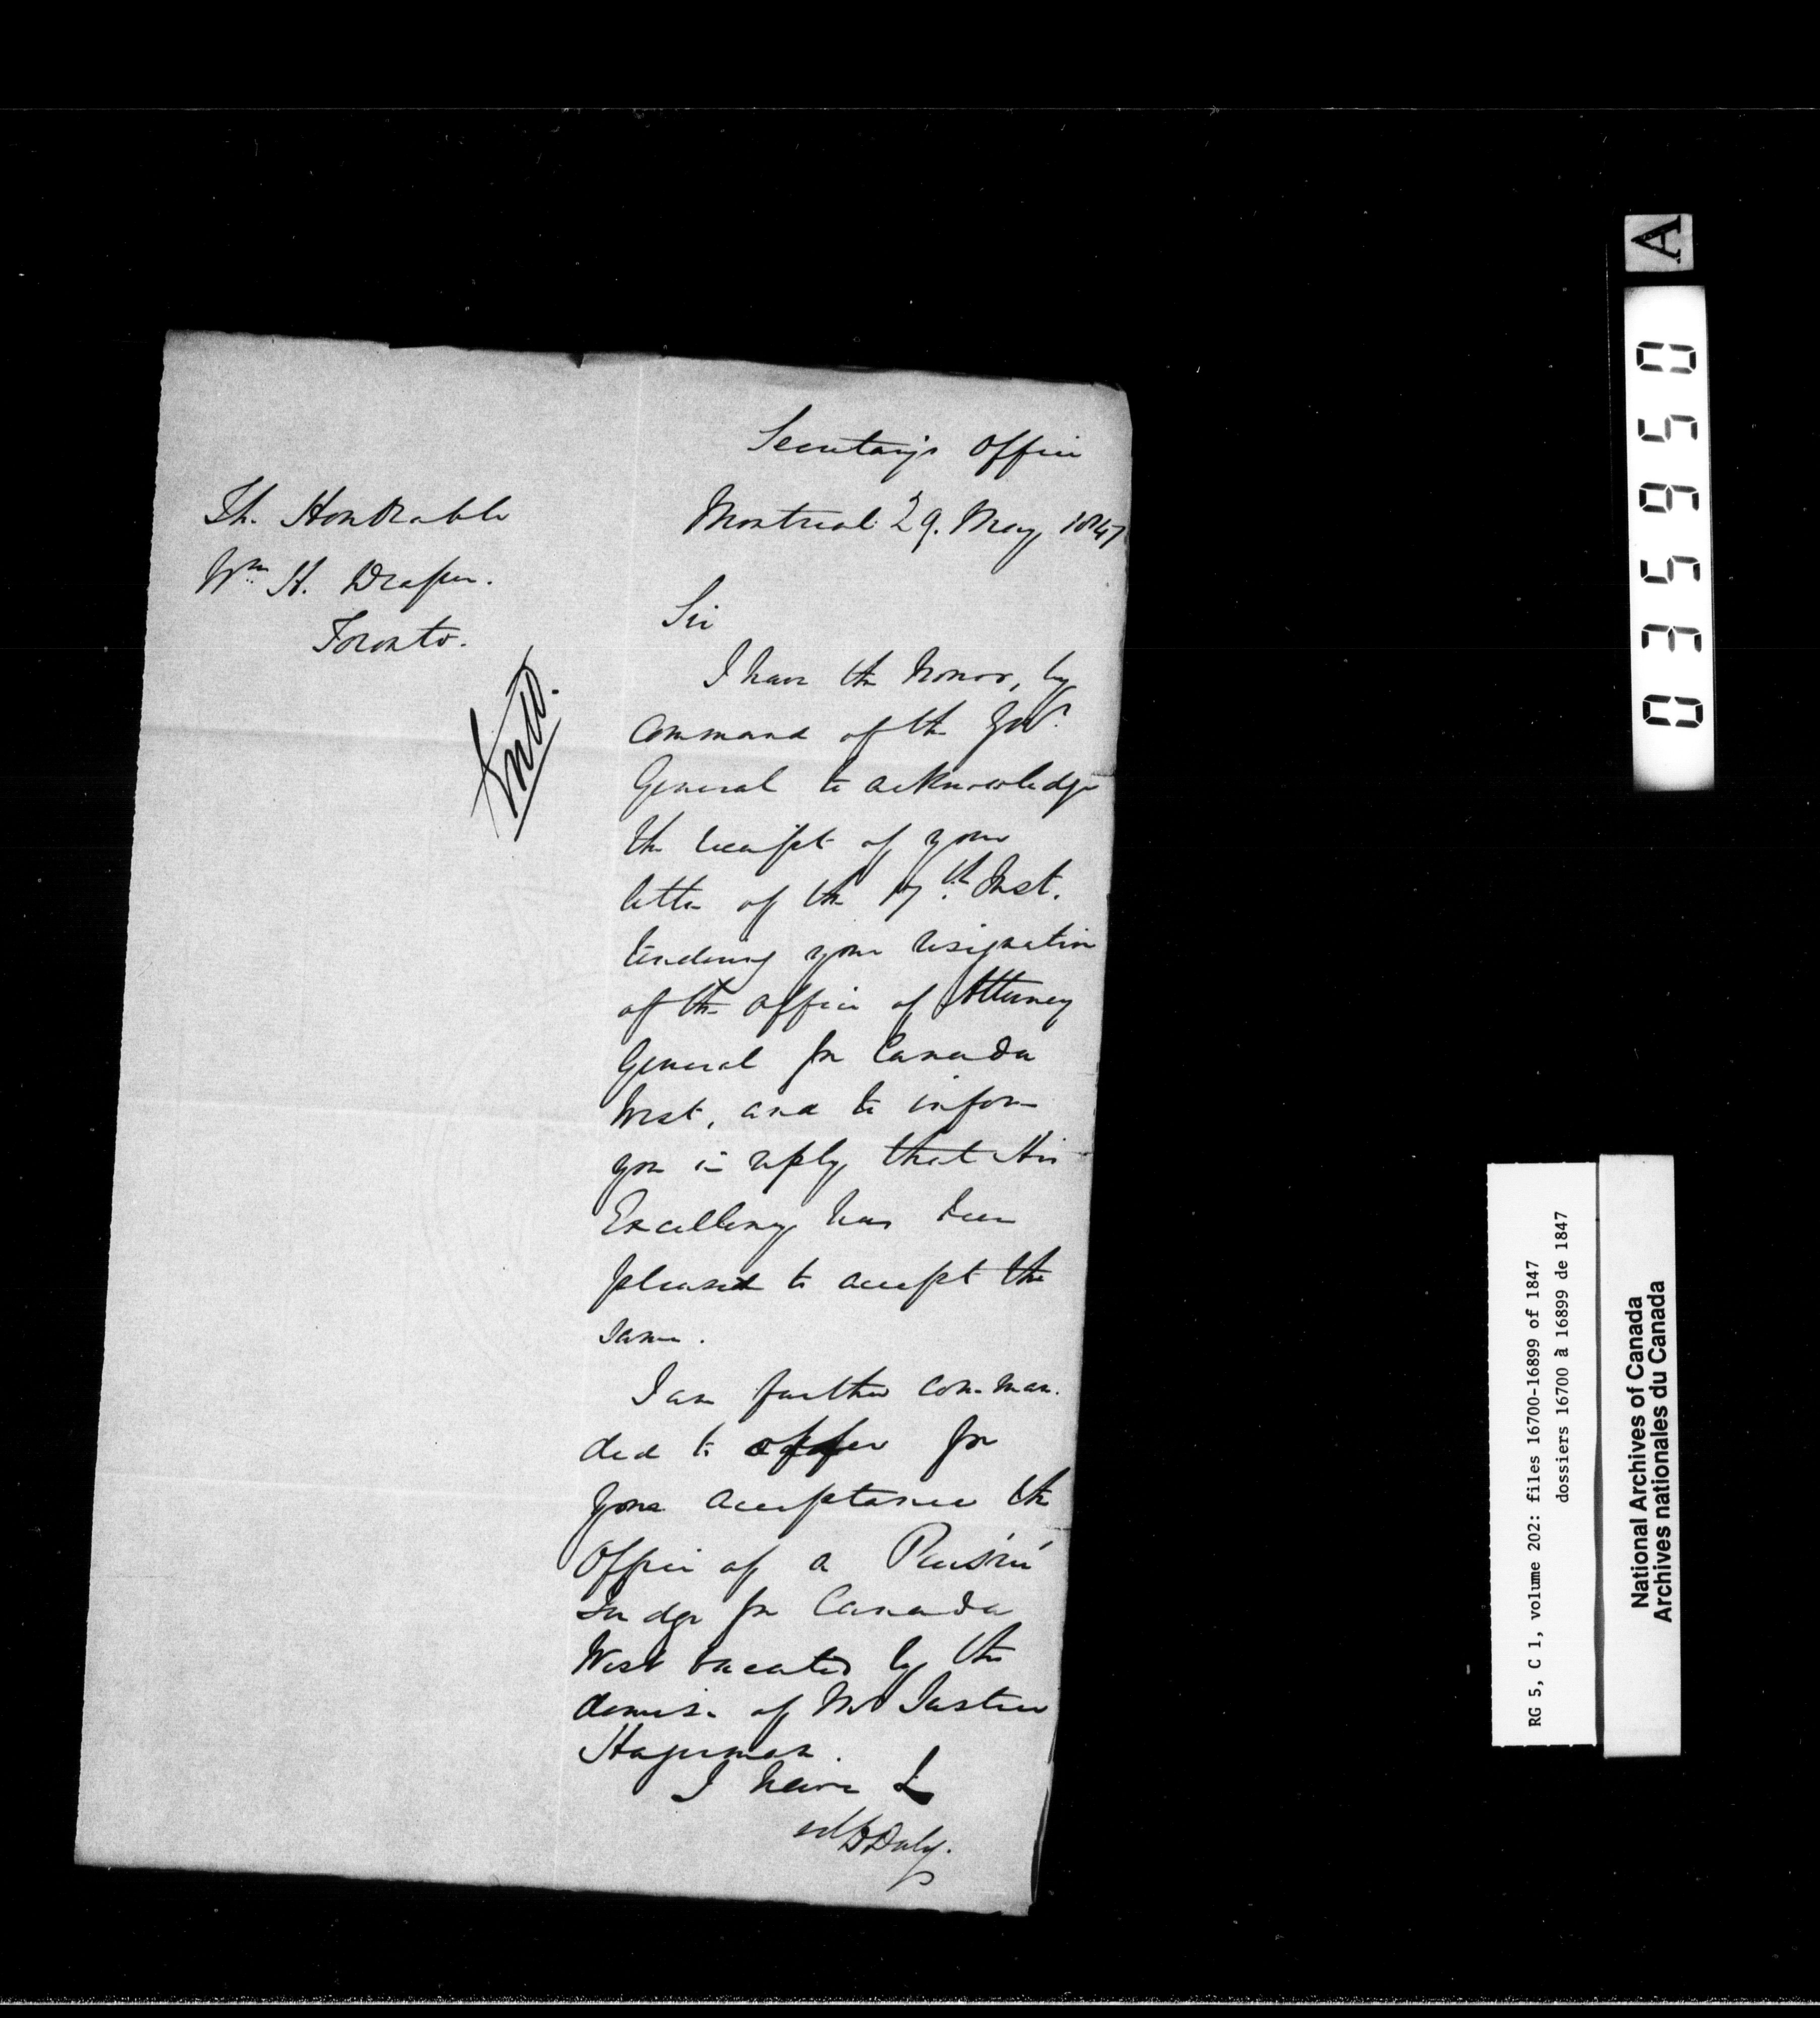 Secretary's Office
Montreal 29. May 1847
The Honorable
Wm H. Draper.
Toronto.
Entd.
Sir
I have the honor, by
command of the Govr.
General to acknowledge
the receipt of your
letter of the 17th. Inst.
tendering your resignation
of the office of Attorney
General for Canada
West, and to inform
you in reply that His
Excellency has been
pleased to accept the
same.
I am further comman-
ded to offer for
your acceptance the
Office of a Puisné
Judge for Canada
West vacated by the
demise of Mr Justice
Hagerman.
I have &
sd/ D Daly.
A
035950
RG 5, C 1, volume 202: files 16700-16899 of 1847
dossiers 16700 à 16899 de 1847
National Archives of Canada
Archives nationales du Canada